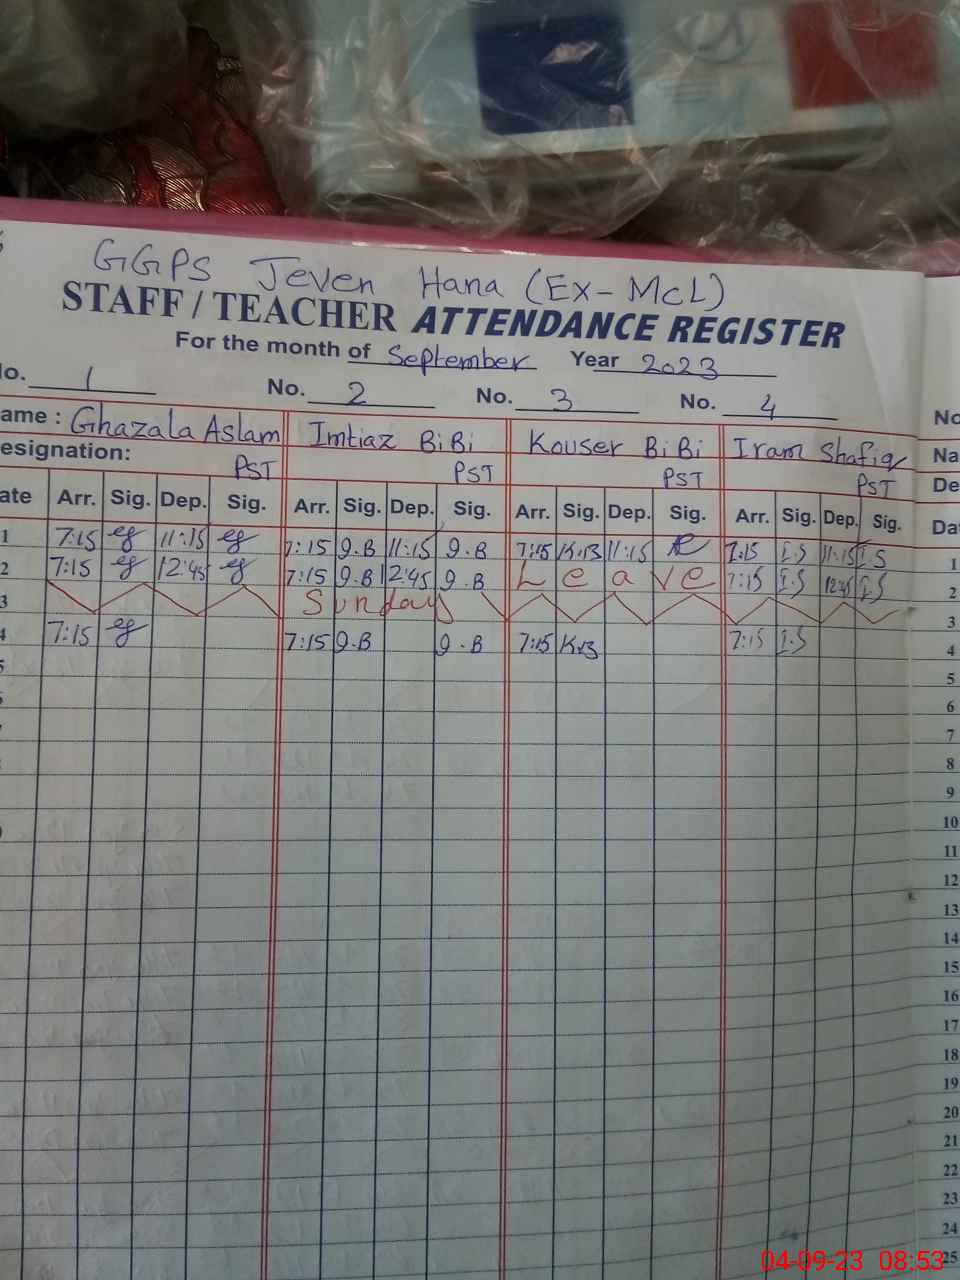 GGPS Jeven Hana (Ex-McL)
STAFF / TEACHER ATTENDANCE REGISTER
For the month of September Year 2023
No. 1 No. 2 No. 3 No. 4 No
ame : Ghazala Aslam Imtiaz BiBi Kouser BiBi Iram Shafiq Na
esignation: PST PST PST PST De
ate Arr. Sig. Dep. Sig. Arr. Sig. Dep. Sig. Arr. Sig. Dep. Sig. Arr. Sig. Dep. Sig. Da
1 7:15 11:15 7:15 I.B 11:15 I.B 7:15 K.B 11:15 7:15 I.S 11:15 I.S 1
2 7:15 12:45 7:15 I.B 12:45 I.B Leave 7:15 I.S 12:45 I.S 2
3 Sunday 3
4 7:15 7:15 I.B I.B 7:15 K.B 7:15 I.S 4
5 5
6
7
8
9
10
11
12
13
14
15
16
17
18
19
20
21
22
23
24
25
04-09-23 08:53